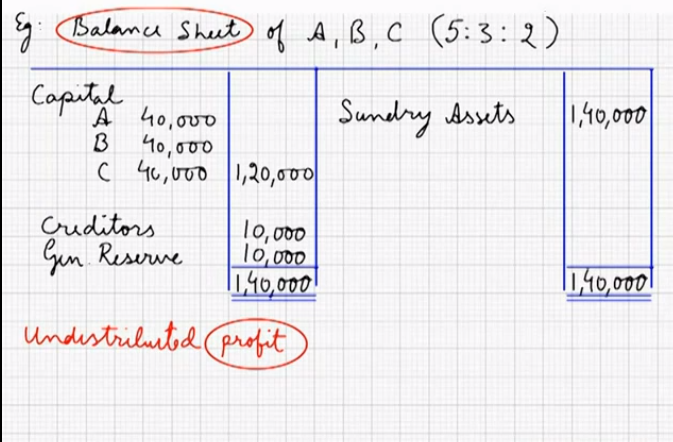 Eg: Balance Sheet of A, B, C (5:3:2)
Capital
A 40,000 Sundry Assets 1,40,000
B 40,000
C 40,000 1,20,000
Creditors 10,000
Gen. Reserve 10,000
1,40,000 1,40,000
Undistributed profit